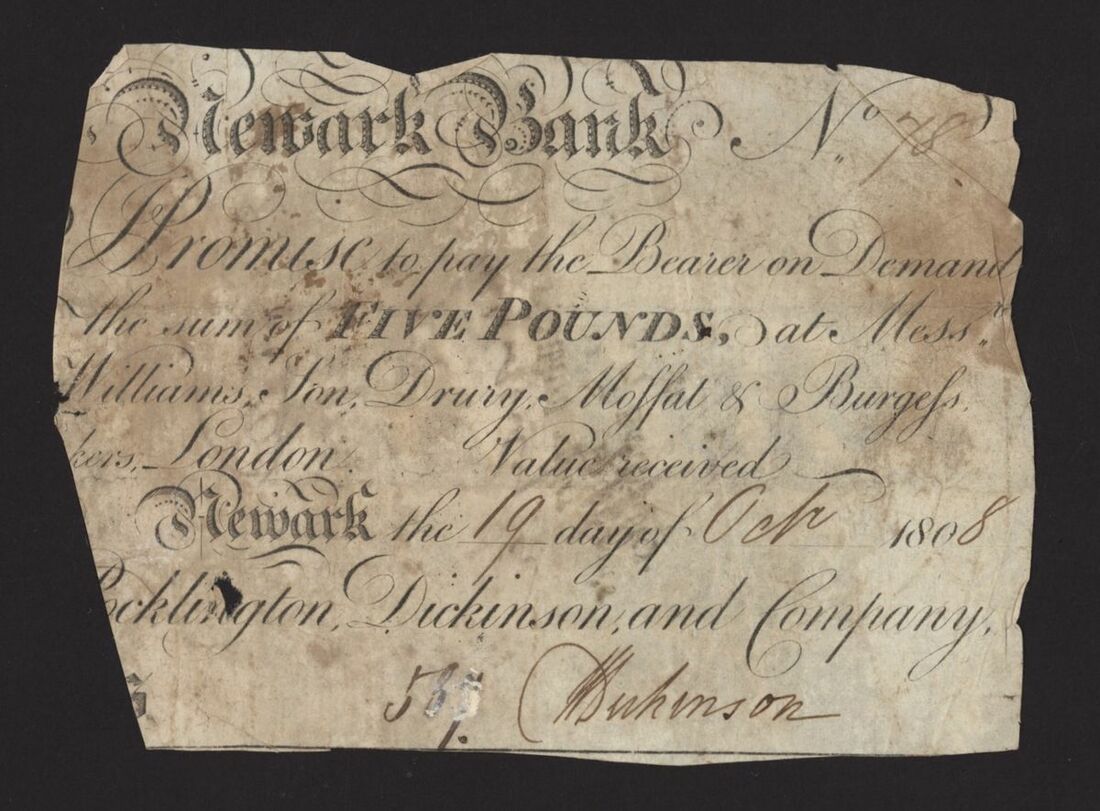 Newark Bank No. 78
I Promise to pay the Bearer on Demand
the sum of FIVE POUNDS, at Messrs.
Williams, Son, Drury, Moffat & Burgeſs,
kers, London. Value received
Newark the 19 day of Octr 1808
ocklington, Dickinson, and Company.
Dickinson